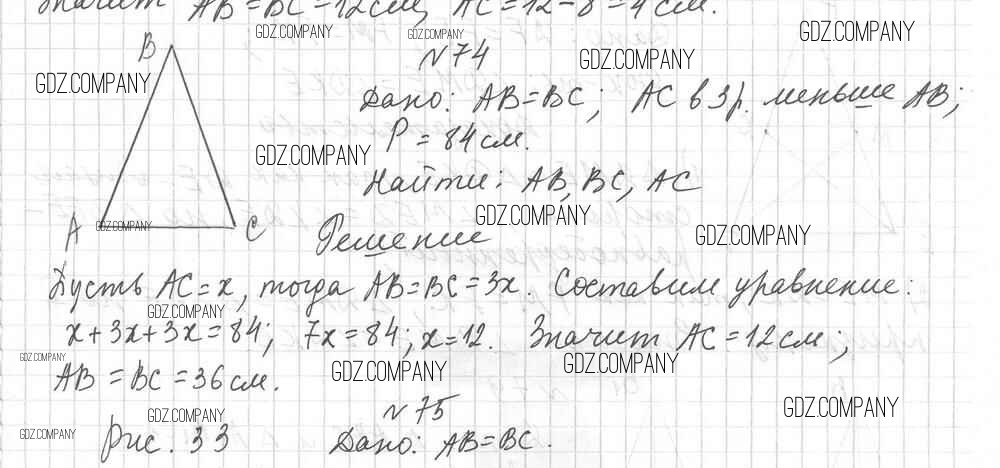 Значит AB = BC = 12 см, AC = 12 - 8 = 4 см.
GDZ.COMPANY GDZ.COMPANY GDZ.COMPANY
B №74
GDZ.COMPANY GDZ.COMPANY
Дано: AB = BC; AC в 3 р. меньше AB;
P = 84 см.
GDZ.COMPANY
Найти: AB, BC, AC
GDZ.COMPANY
A GDZ.COMPANY C Решение GDZ.COMPANY
Пусть AC = x, тогда AB = BC = 3x. Составим уравнение:
GDZ.COMPANY
x + 3x + 3x = 84; 7x = 84; x = 12. Значит AC = 12 см;
GDZ.COMPANY GDZ.COMPANY GDZ.COMPANY
AB = BC = 36 см.
№75 GDZ.COMPANY
GDZ.COMPANY
GDZ.COMPANY Рис. 33 Дано: AB = BC.